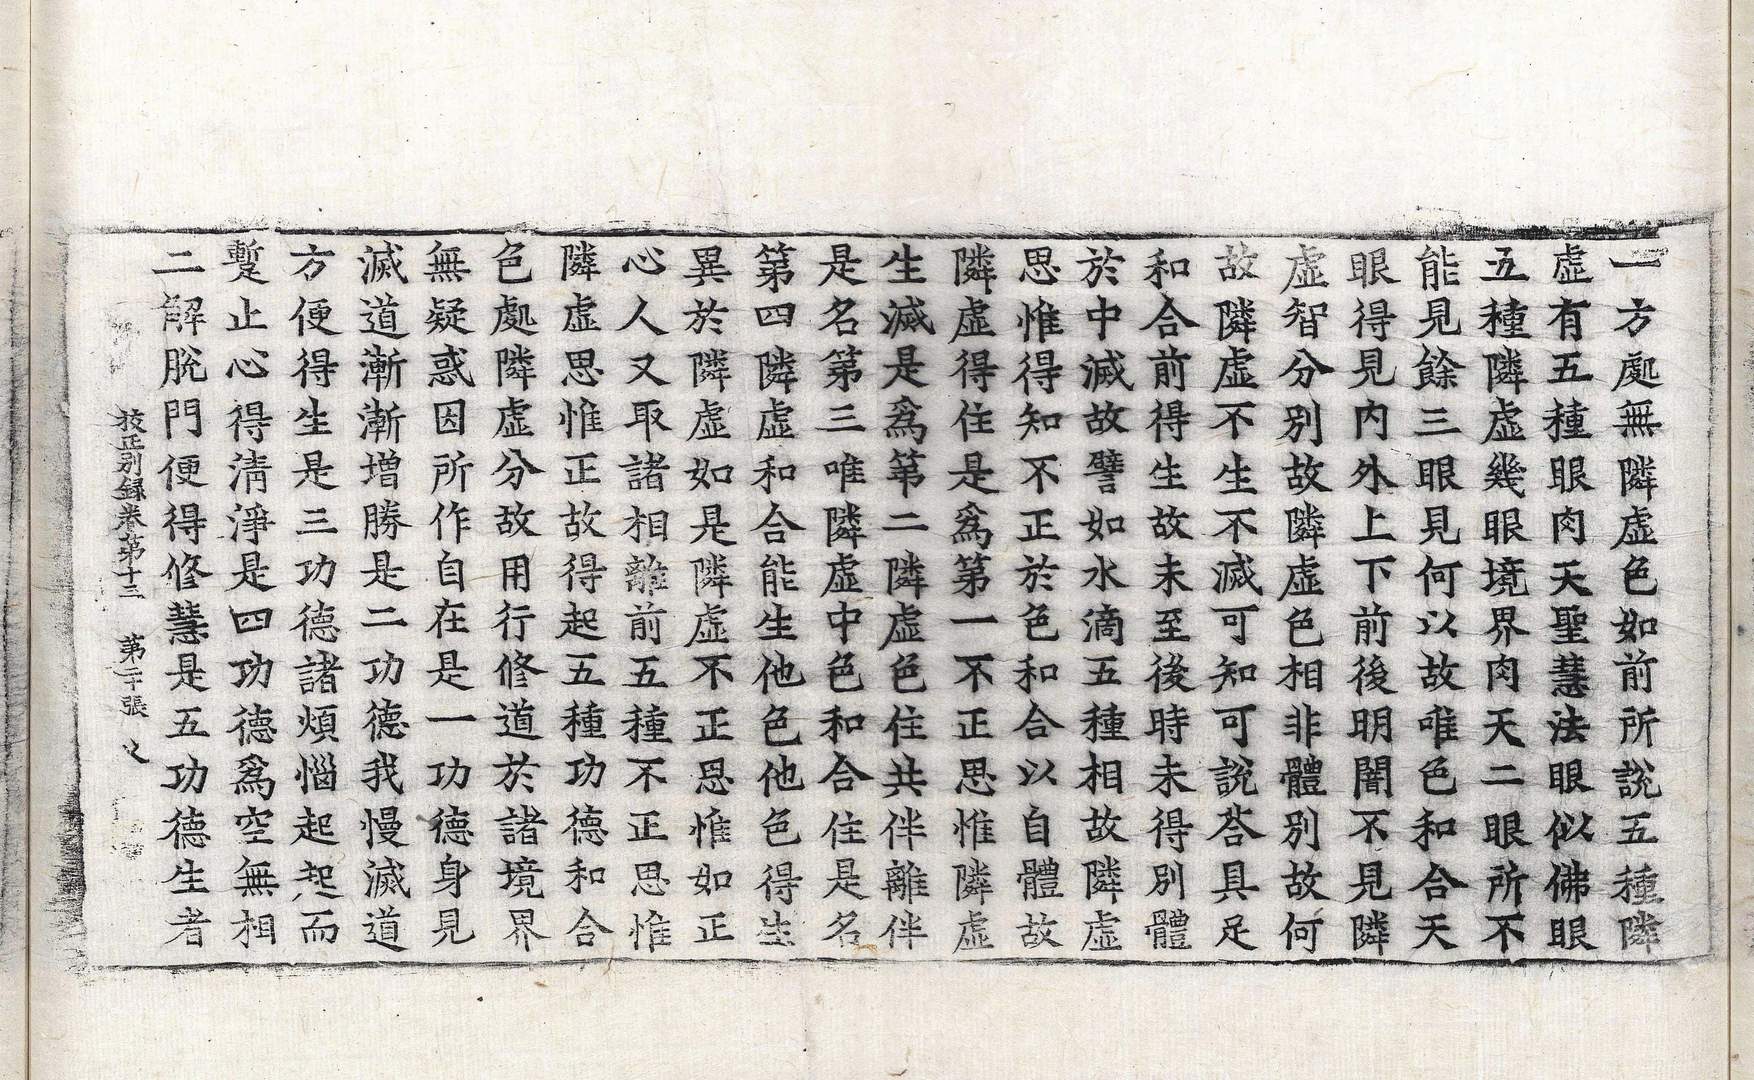 一方處無隣虛色如前所說五種隣
虛有五種眼肉天聖慧法眼似佛眼
五種隣虛幾眼境界肉天二眼所不
能見餘三眼見何以故唯色和合天
眼得見內外上下前後明闇不見隣
虛智分別故隣虛色相非體別故何
故隣虛不生不滅可知可說荅具足
和合前得生故未至後時未得別體
於中滅故譬如水滴五種相故隣虛
思惟得知不正於色和合以自體故
隣虛得住是爲第一不正思惟隣虛
生滅是爲第二隣虛色住共伴離伴
是名第三唯隣虛中色和合住是名
第四隣虛和合能生他色他色得生
異於隣虛如是隣虛不正思惟如正
心人又取諸相離前五種不正思惟
隣虛思惟正故得起五種功德和合
色處隣虛分故用行修道於諸境界
無疑惑因所作自在是一功德身見
滅道漸漸增勝是二功德我慢滅道
方便得生是三功德諸煩惱起起而
暫止心得淸淨是四功德爲空無相
二解脫門便得修慧是五功德生者
挍正別録卷第十三　第二十張